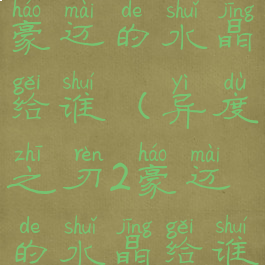 háo mài de shuǐ jīng
豪迈的水晶
gěi shuí yì dù
给谁（异度
zhī rèn háo mài
之刃2豪迈
de shuǐ jīng gěi shuí
的水晶给谁